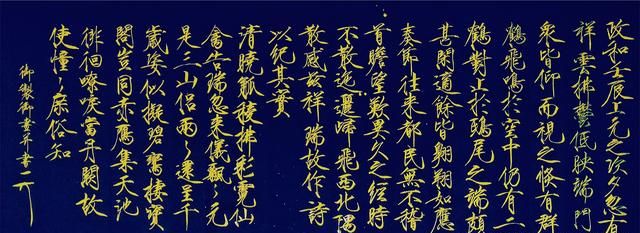 政和壬辰上元之次夕忽有
祥雲拂鬱低映端門
衆皆仰而視之倏有群
鶴飛鳴於空中仍有二
鶴對止於鴟尾之端頗
甚閑適餘皆翱翔如應
奏節往來都民無不稽
首瞻望歎異久之經時
不散迤邐歸飛西北隅
散感茲祥瑞故作詩
以紀其實
清曉觚稜拂彩霓仙
禽告瑞忽來儀飄々元
是三山侶兩々還呈千
歲姿似擬碧鸞棲寶
閣豈同赤鴈集天池
徘徊嘹唳當丹闕故
使憧々庶俗知
御製御畫并書